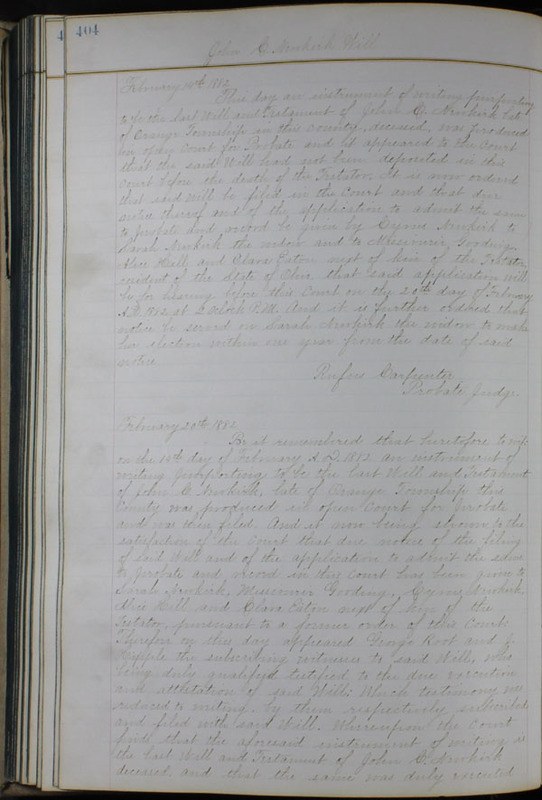 404
John C. Newkirk Will
February 14th 1882
This day an instrument of writing purporting
to be the last Will and Testament of John C. Newkirk late
of Orange Township in this County, deceased, was produced
in open Court for Probate and it appeared to the Court
that the said Will had not been deposited in this
Court before the death of the Testator. It is now ordered
that said Will be filed in the Court and that due
notice thereof and of the application to admit the same
to Probate and record be given by Cyrus Newkirk to
Sarah Newkirk the widow and to Missouri Gooding
Alice Hill and Clara Eaton next of kin of the Testator
resident of the State of Ohio that said application will
be for hearing before this Court on the 20th day of February
A.D. 1882 at 2 Oclock P.M. And it is further ordered that
notice be served on Sarah Newkirk the widow to make
her election within one year from the date of said
notice
Rufus Carpenter
Probate Judge
February 20th 1882
Be it remembered that heretofore to wit
on the 14th day of February A.D. 1882 an instrument of
writing purporting to be the last Will and Testament
of John C. Newkirk, late of Orange Township this
County was produced in open Court for probate
and was then filed. And it now being shown to the
satisfaction of the Court that due notice of the filing
of said Will and of the application to admit the same
to probate and record in this Court has been given to
Sarah Newkirk, Gooding, Newkirk
Alice Hill and Clara Eaton next of kin of the
Testator, pursuant to a former order of this Court
Therefore on this day appeared George Root and J.
the subscribing witnesses to said Will, who
being duly qualified testified to the due execution
and attestation of said Will: Which testimony was
reduced to writing, by them respectively subscribed
and filed with said Will. Whereupon the Court
finds that the aforesaid instrument of writing is
the last Will and Testament of John C. Newkirk
deceased, and that the same was duly executed